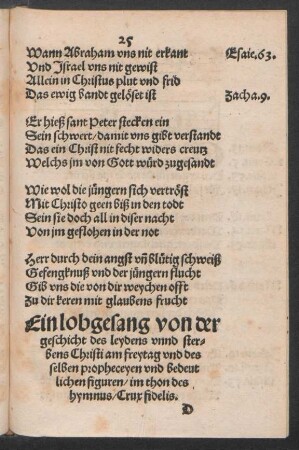 25
Wann Abraham vns nit erkant Esaie.63.
Vnd Israel vns nit gewist
Allein in Christus plut vnd frid
Das ewig bandt gelöset ist Zacha.9.
Er hieß sant Peter stecken ein
Sein schwert/damit vns gibt verstandt
Das ein Christ nit fecht widers creutz
Welchs jm von Gott würd zugesandt
Wie wol die jüngern sich vertröst
Mit Christo geen biß in den todt
Sein sie doch all in diser nacht
Von jm geflohen in der not
Herr durch dein angst vñ blütig schweiß
Gefengknuß vnd der jüngern flucht
Gib vns die von dir weychen offt
Zu dir keren mit glaubens frucht
Ein lobgesang von der
geschicht des leydens vnnd ster-
bens Christi am freytag vnd des
selben propheceyen vnd bedeut
lichen figuren/im thon des
hymnus/Crux fidelis.
D